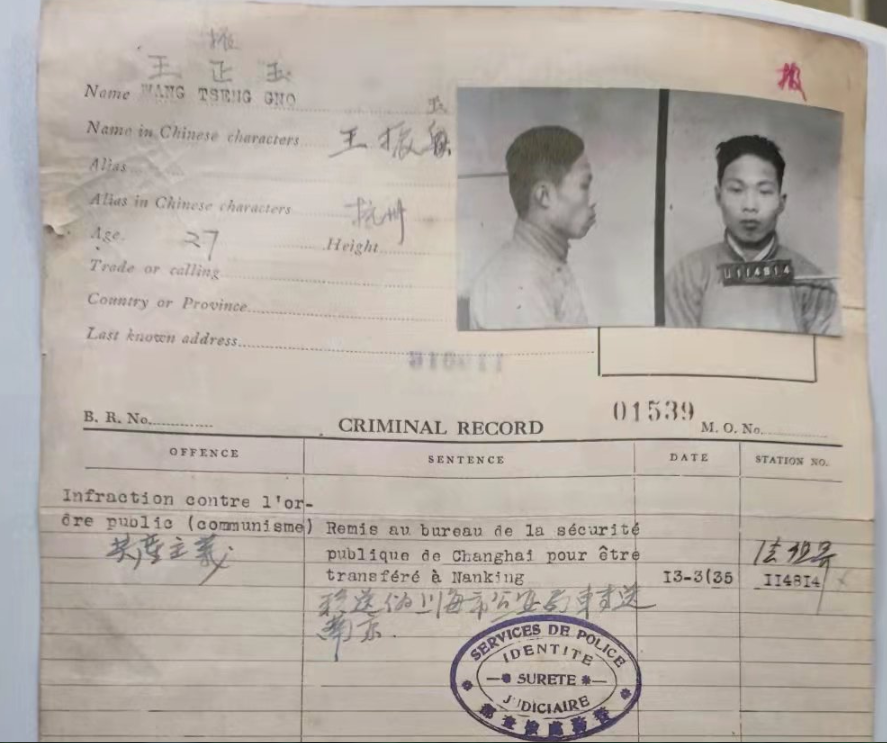 王正玉
Name WANG TSENG GNO
Name in Chinese characters 王振
玉
Alias
Alias in Chinese characters 杭州
Age. 27 Height
Trade or calling
Country or Province
Last known address
U114814
01539
B. R. No. CRIMINAL RECORD M. O. No.
OFFENCE SENTENCE DATE STATION NO.
Infraction contre l'or-
dre public (communisme) Remis au bureau de la sécurité
共产主义 publique de Changhai pour être 法租界
transféré à Nanking 13-3(35 114814
移送上海市公安局
南京.
SERVICES DE POLICE
IDENTITE
SURETE
JUDICIAIRE